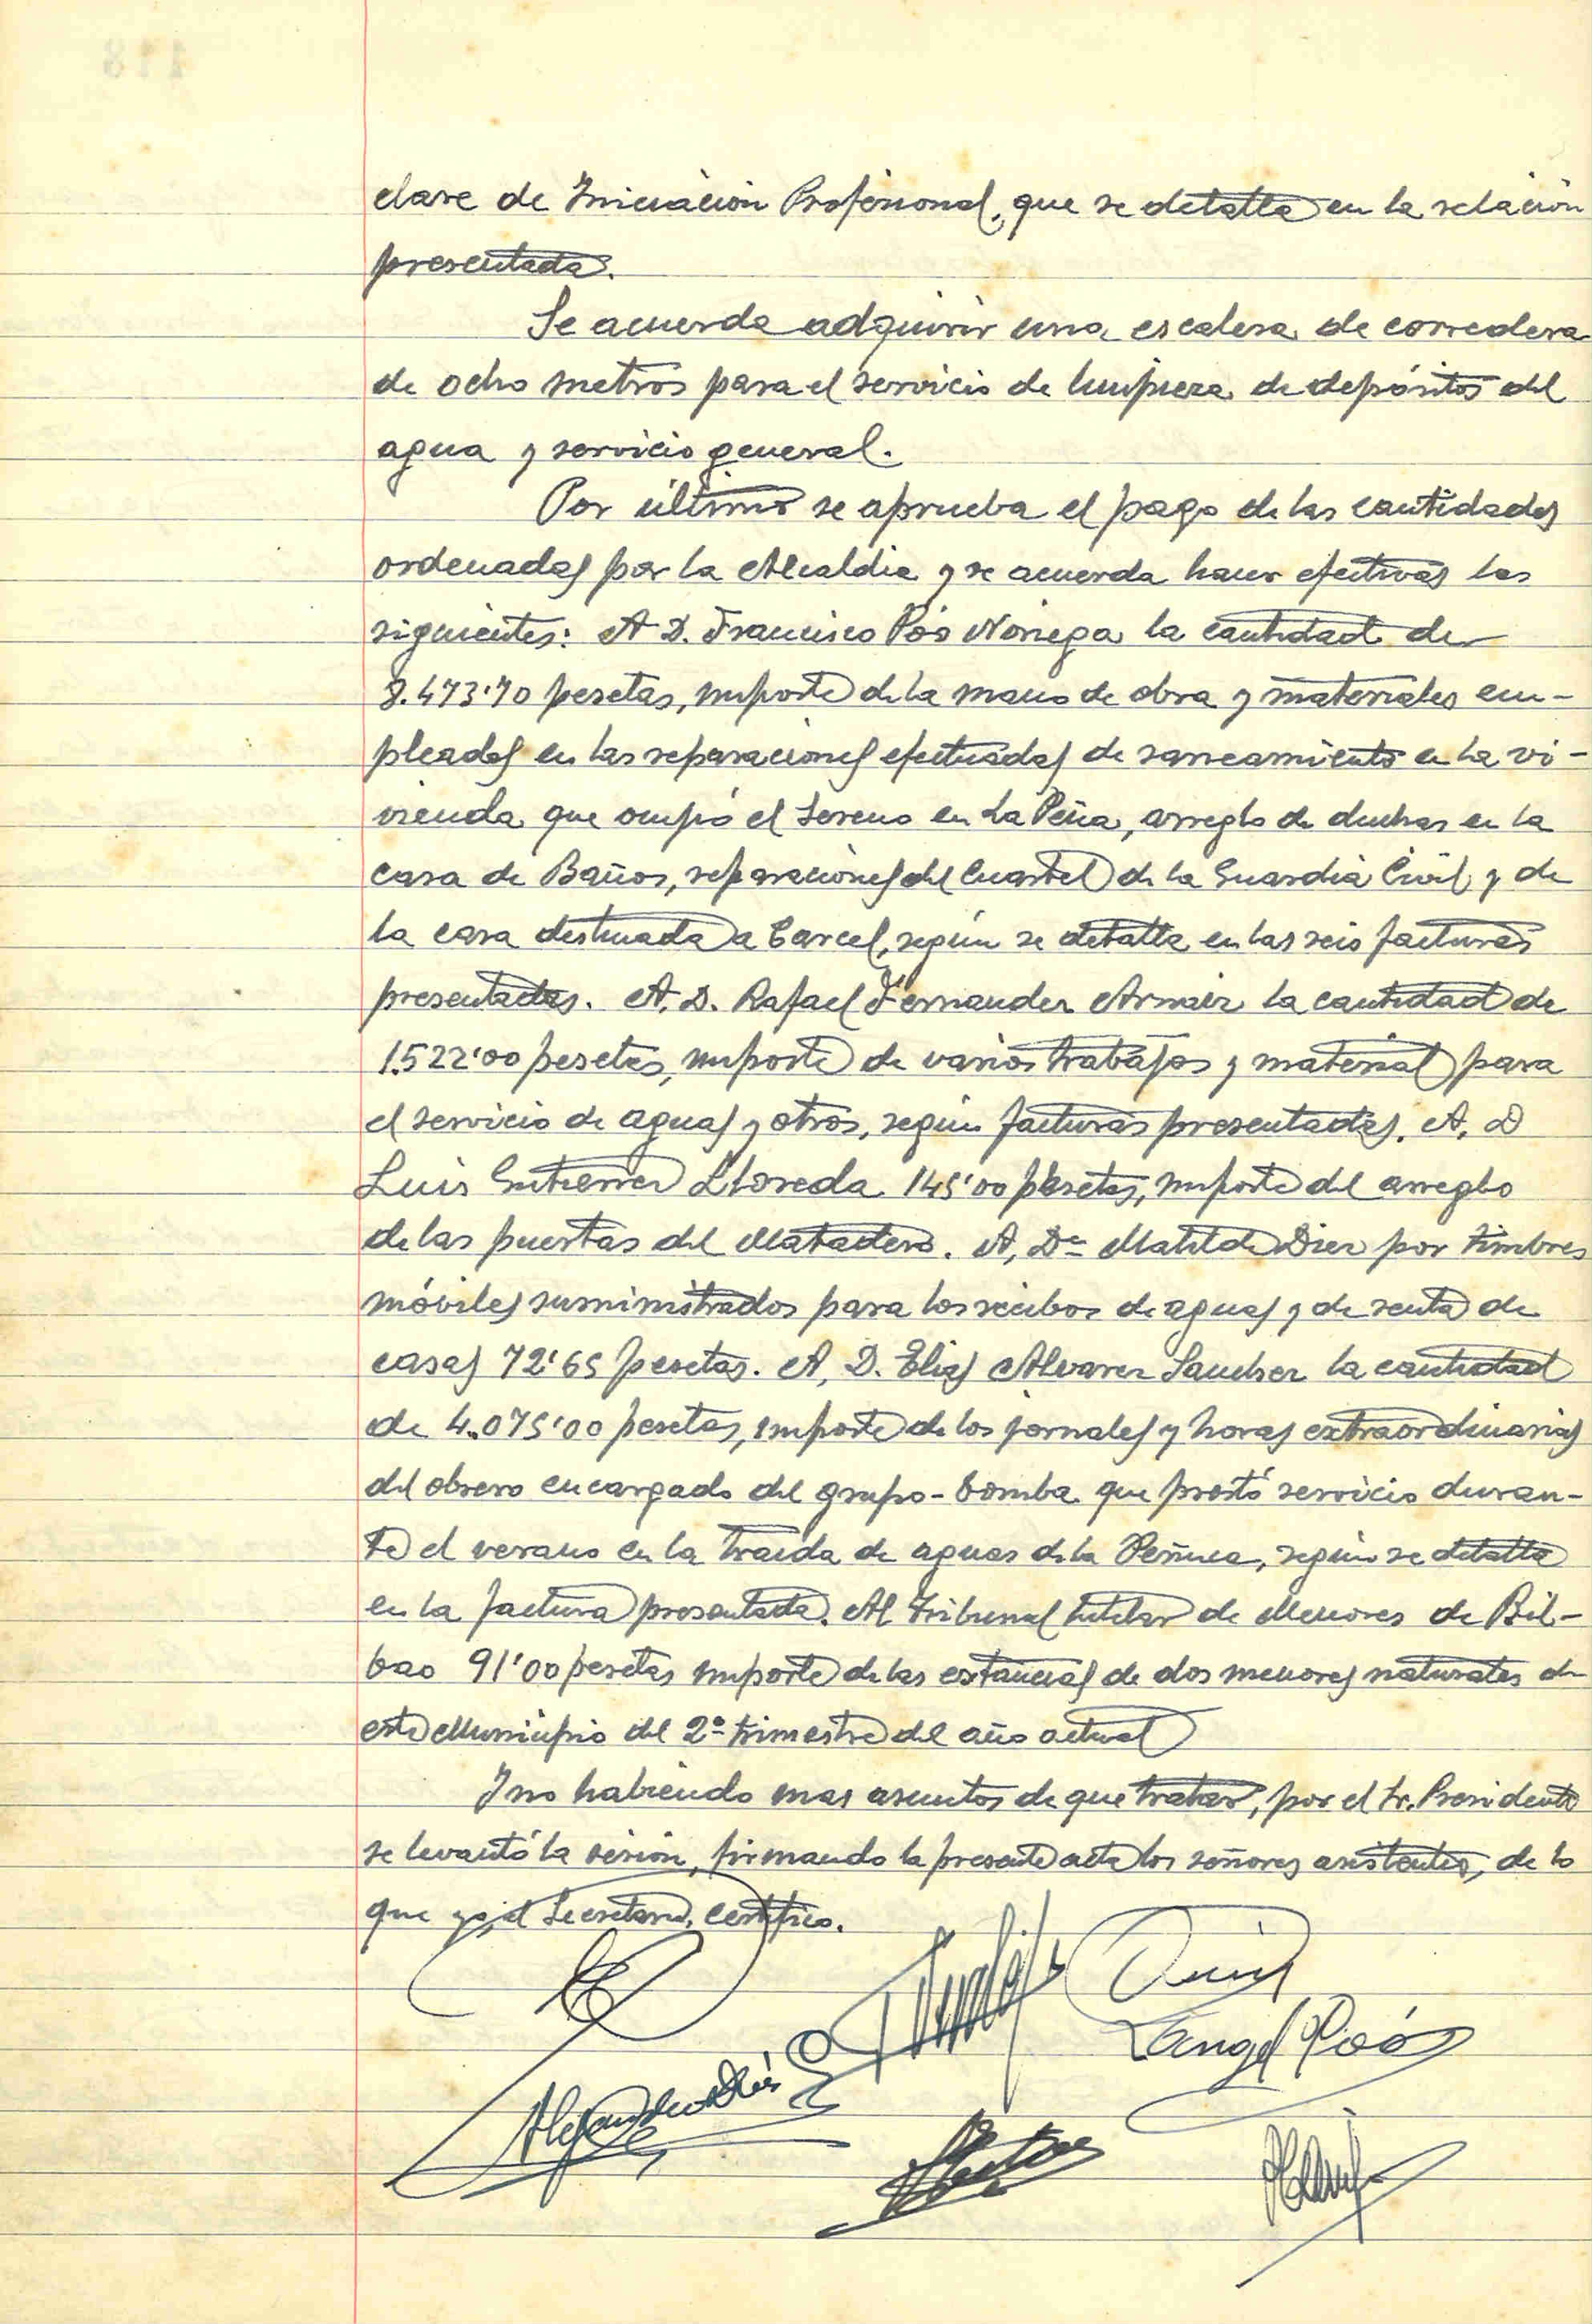 clase de Iniciación Profesional, que se detalla en la relación
presentada.
Se acuerda adquirir una escalera de corredera
de ocho metros para el servicio de limpieza de depósitos del
agua y servicio general.
Por último se aprueba el pago de las cantidades
ordenadas por la Alcaldia y se acuerda hacer efectivas las
siguientes: A D. Francisco Póo Noriega la cantidad de
8.473'70 pesetas, importe de la mano de obra y materiales em-
pleados en las reparaciones efectuadas de saneamiento en la vi-
vienda que ocupó el Sereno en La Peña, arreglo de duchas en la
casa de Baños, reparaciones del Cuartel de la Guardia Civil y de
la casa destinada a Carcel, según se detalla en las seis facturas
presentadas. A, D. Rafael Fernandez Arnaiz la cantidad de
1.522'00 pesetas, importe de varios trabajos y material para
el servicio de aguas y otros, según facturas presentadas. A, D
Luis Gutierrez Lloreda 145'00 pesetas, importe del arreglo
de las puertas del Matadero. A, Dª Matilde Diez por timbres
móviles suministrados para los recibos de aguas y de renta de
casas 72'65 pesetas. A, D. Elias Alvarez Sanchez la cantidad
de 4.075'00 pesetas, importe de los jornales y horas extraordinarias
del obrero encargado del grupo-bomba que prestó servicio duran-
te el verano en la traida de aguas de la Peñuca, según se detalla
en la factura presentada. Al Tribunal tutelar de Menores de Bil-
bao 91'00 pesetas importe de las estancias de dos menores naturales de
este Municipio del 2º trimestre del año actual
Y no habiendo mas asuntos de que tratar, por el Sr. Presidente
se levantó la sesión, firmando la presente acta los señores asistentes, de lo
que yo, el Secretario, certifico.
Angel Póo
Alejandro Diez